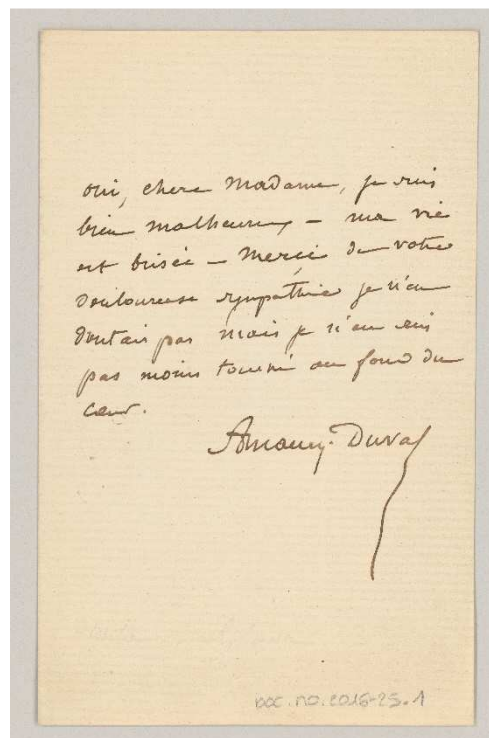 oui, chere Madame, je suis
bien malheureux – ma vie
est brisée – Merci de votre
douloureuse sympathie je n'en
doutais pas mais je n'en suis
pas moins touché au fond du
cœur.
Amaury-Duval
DOC. NO. 2016-25.1